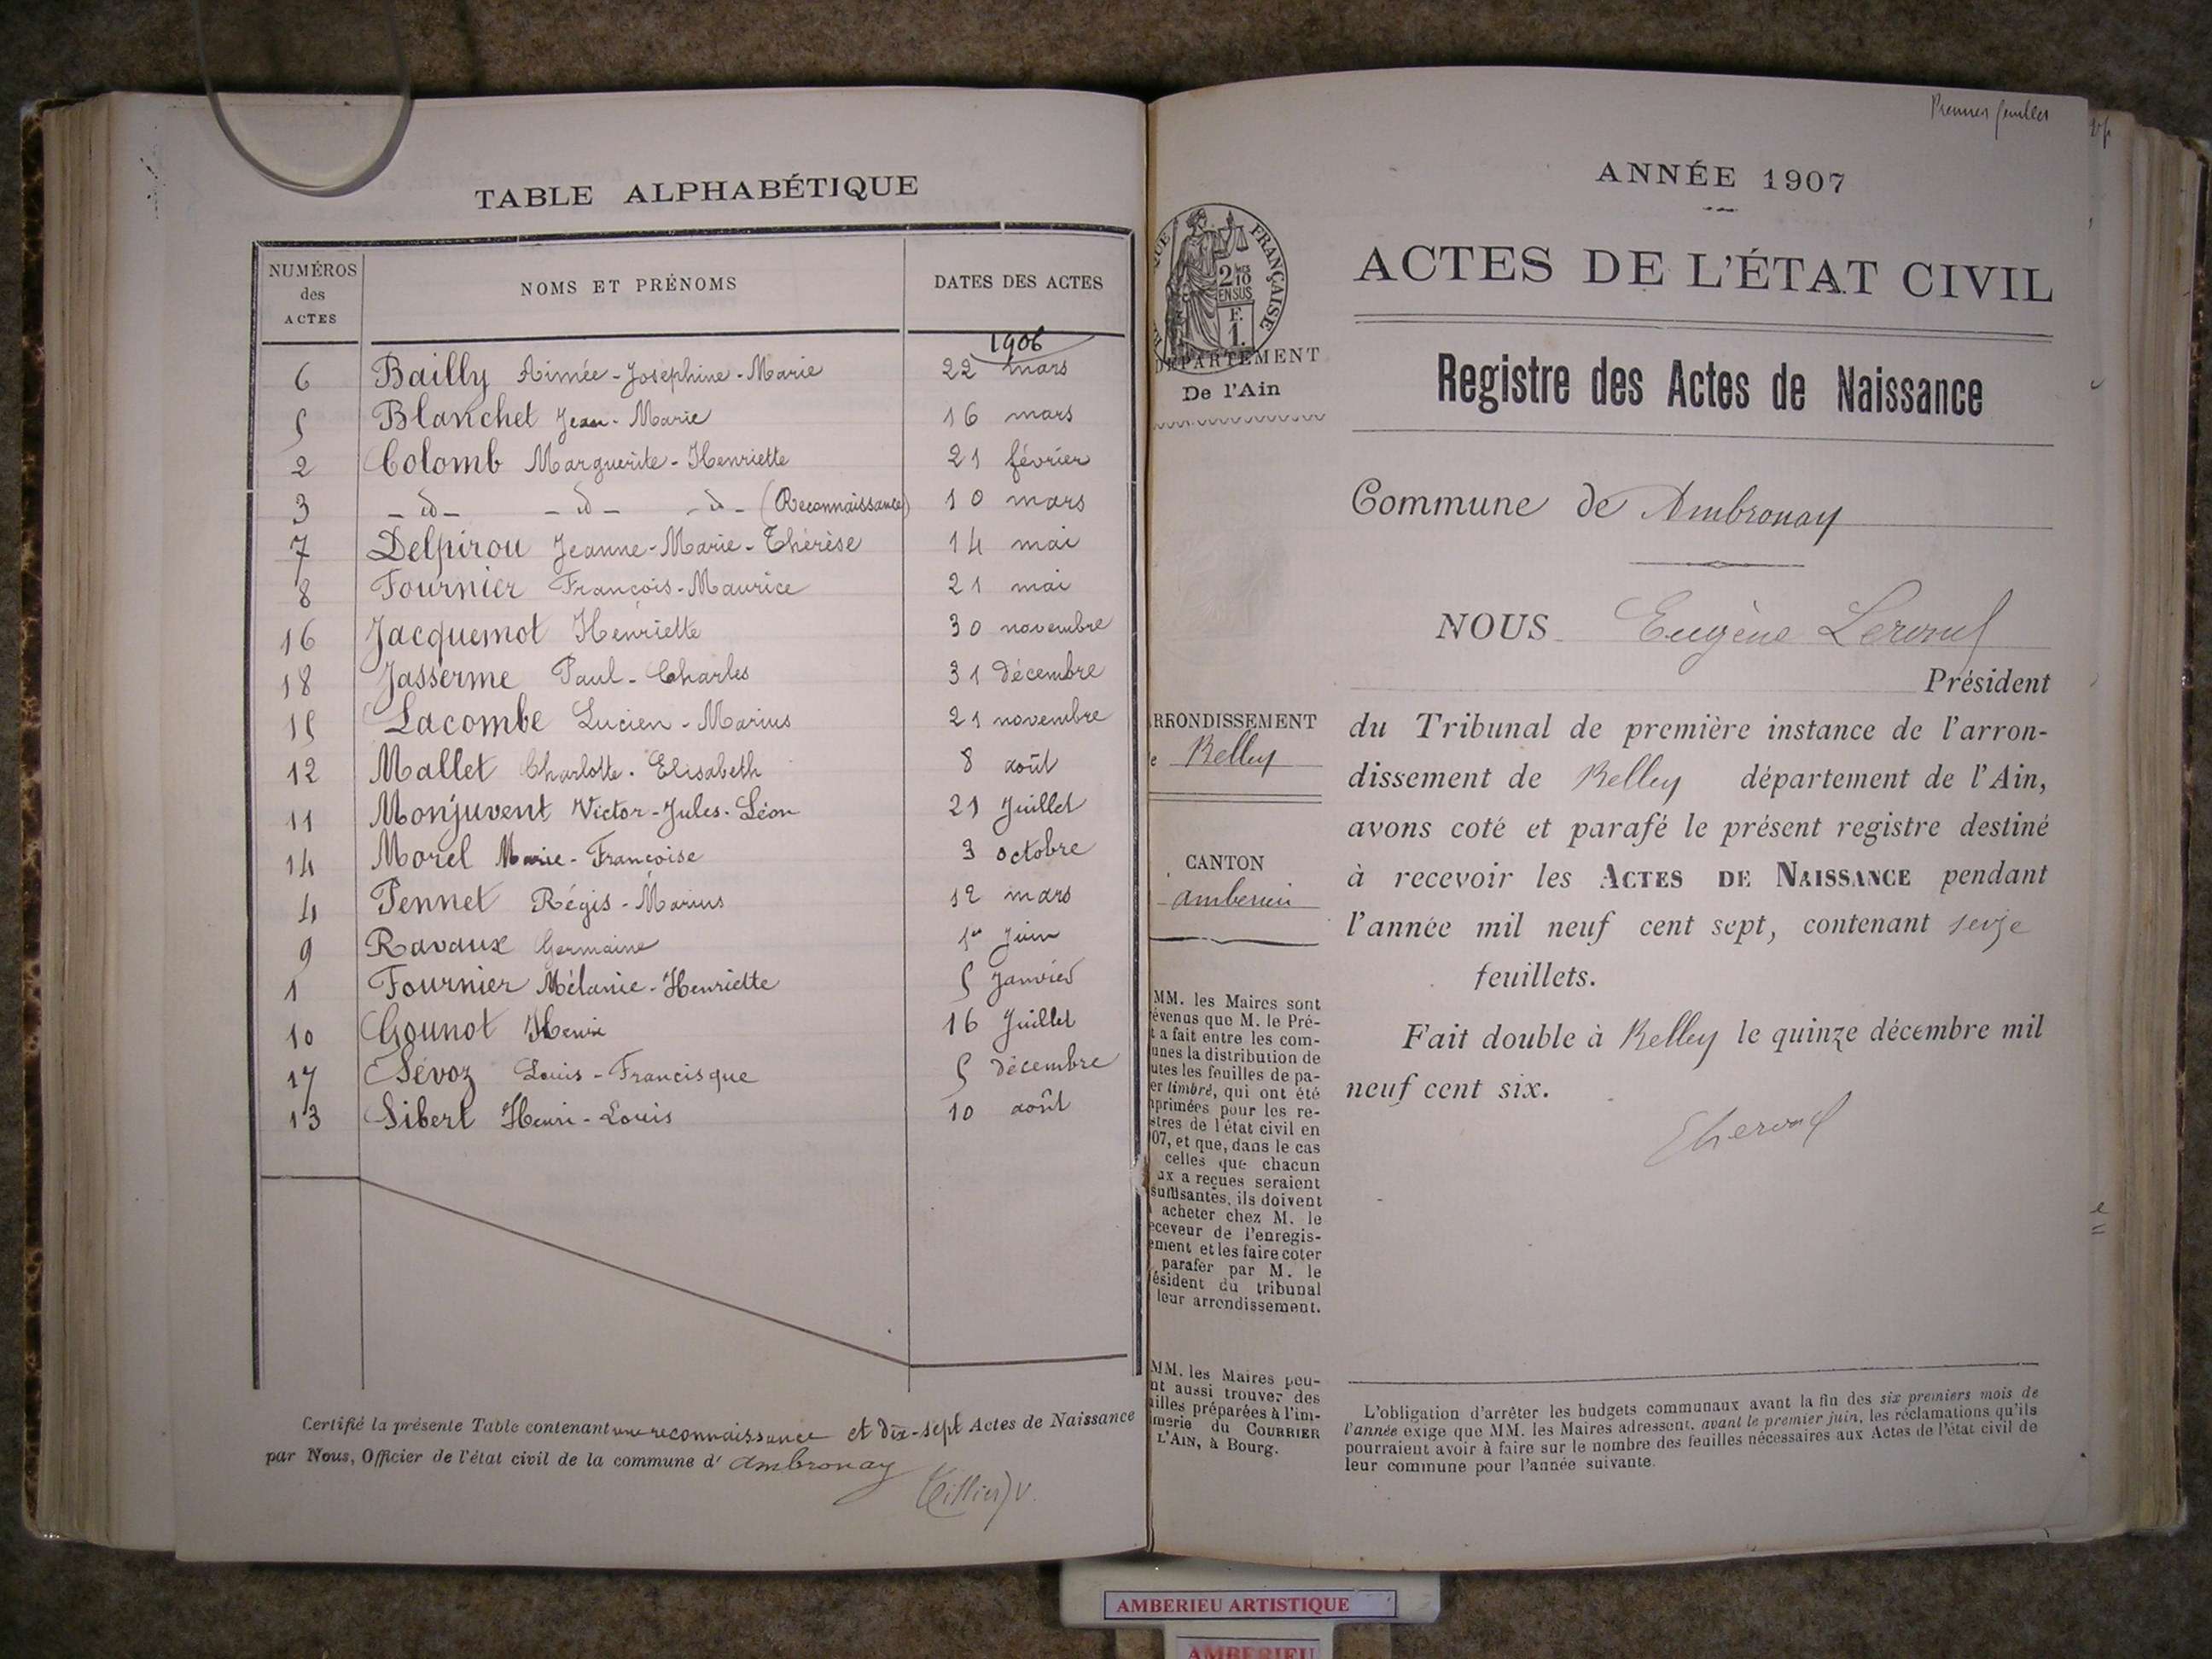 TABLE ALPHABÉTIQUE
NUMÉROS des ACTES
NOMS ET PRÉNOMS
DATES DES ACTES
1906
6 Bailly Aimée-Joséphine-Marie 22 mars
5 Blanchet Jean-Marie 16 mars
2 Colomb Marguerite-Henriette 21 février
3 -d°- -d°- -d°- (Reconnaissance) 10 mars
7 Delpirou Jeanne-Marie-Thérèse 14 mai
8 Fournier François-Maurice 21 mai
16 Jacquemot Henriette 30 novembre
18 Jasserme Paul-Charles 31 décembre
15 Lacombe Lucien-Marius 21 novembre
12 Mallet Charlotte-Elisabeth 8 août
11 Monjuvent Victor-Jules-Léon 21 Juillet
14 Morel Marie-Françoise 3 octobre
4 Pennet Régis-Marius 12 mars
9 Ravaux Germaine 1er Juin
1 Fournier Mélanie-Henriette 5 Janvier
10 Gounot Henri 16 Juillet
17 Sévoz Louis-Francisque 5 décembre
13 Sibert Henri-Louis 10 août
Certifié la présente Table contenant une reconnaissance et dix-sept Actes de Naissance
par Nous, Officier de l'état civil de la commune d'Ambronay
Tillier V.
Premier feuillet
ANNÉE 1907
ACTES DE L'ÉTAT CIVIL
QUE FRANÇAISE
2/10 EN SUS
F. 1.
DÉPARTEMENT
De l'Ain
Registre des Actes de Naissance
Commune de Ambronay
NOUS Eugène
Président
RRONDISSEMENT
e Belley
du Tribunal de première instance de l'arron-
dissement de Belley département de l'Ain,
avons coté et parafé le présent registre destiné
CANTON
à recevoir les ACTES DE NAISSANCE pendant
l'année mil neuf cent sept, contenant seize
feuillets.
Fait double à Belley le quinze décembre mil
neuf cent six.
MM. les Maires sont
évenus que M. le Pré-
t a fait entre les com-
unes la distribution de
utes les feuilles de pa-
er timbré, qui ont été
primées pour les re-
stres de l'état civil en
07, et que, dans le cas
celles que chacun
ux a reçues seraient
suffisantes, ils doivent
acheter chez M. le
eceveur de l'enregis-
ement et les faire coter
parafer par M. le
ésident du tribunal
leur arrondissement.
MM. les Maires peu-
nt aussi trouver des
uilles préparées à l'im-
imerie du COURRIER
L'AIN, à Bourg.
L'obligation d'arrêter les budgets communaux avant la fin des six premiers mois de
l'année exige que MM. les Maires adressent, avant le premier juin, les réclamations qu'ils
pourraient avoir à faire sur le nombre des feuilles nécessaires aux Actes de l'état civil de
leur commune pour l'année suivante.
AMBERIEU ARTISTIQUE
AMBERIEU